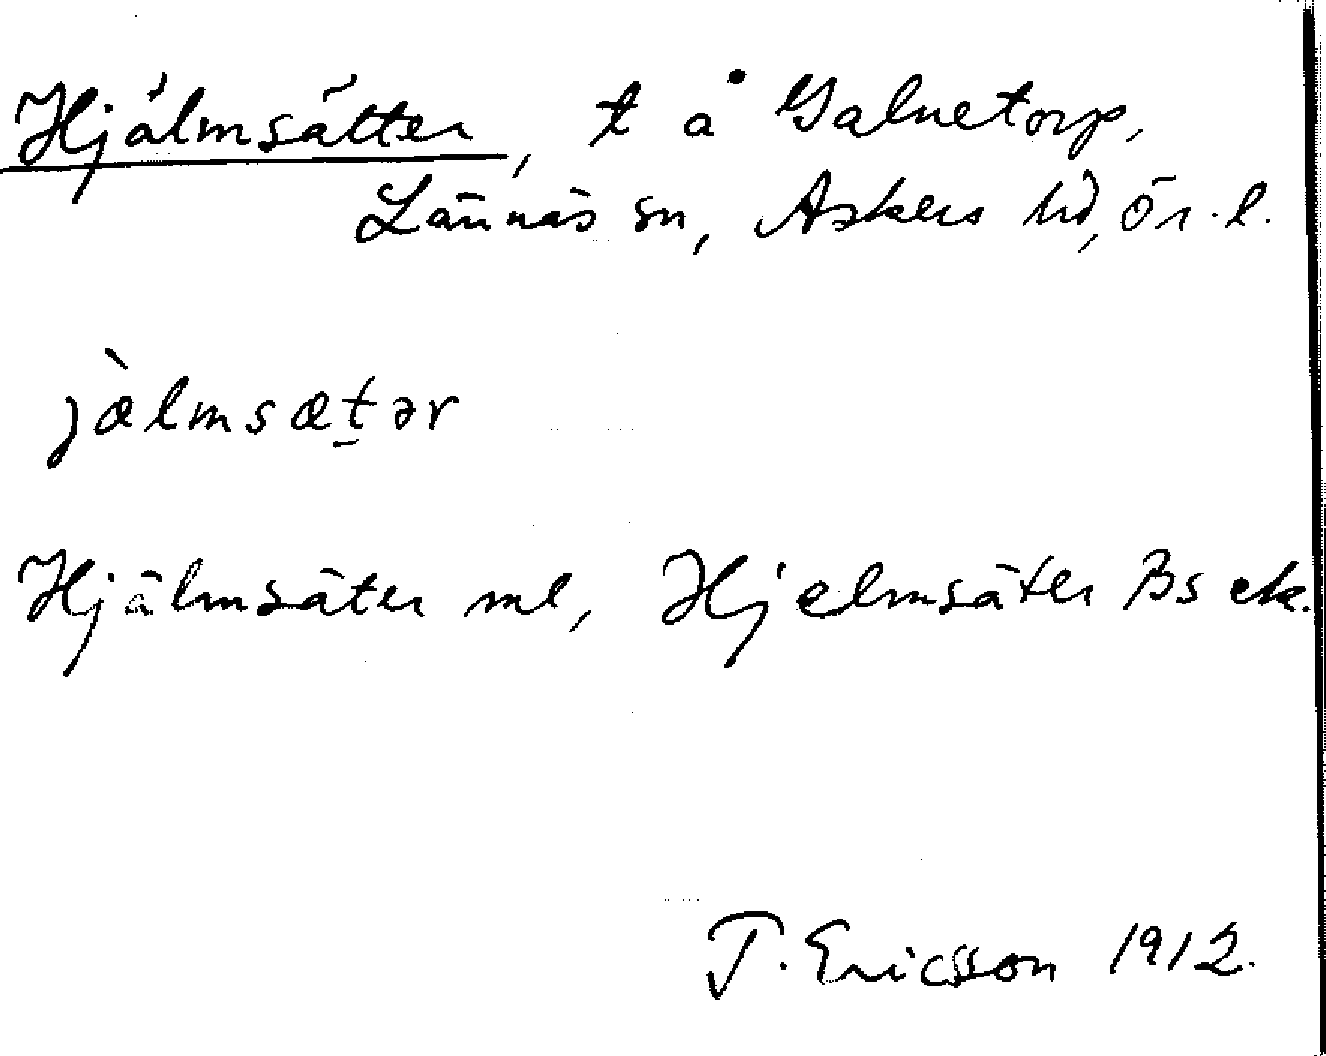 Hjälmsätter, t å Galnetorp,
Lännäs sn, Askers hd, Ör. l.
jæ̀lmsæt̠ər
Hjälmsäter ml, Hjelmsäter Bs ek.
T. Ericsson 1912.